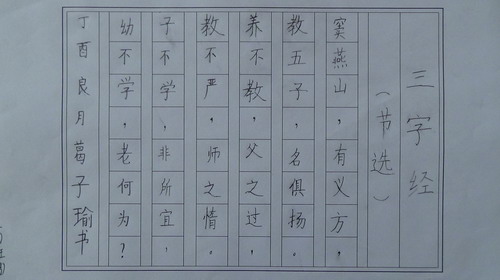 三字经
（节选）
窦燕山，有义方，
教五子，名俱扬。
养不教，父之过，
教不严，师之情。
子不学，非所宜，
幼不学，老何为？
丁酉良月葛子瑜书